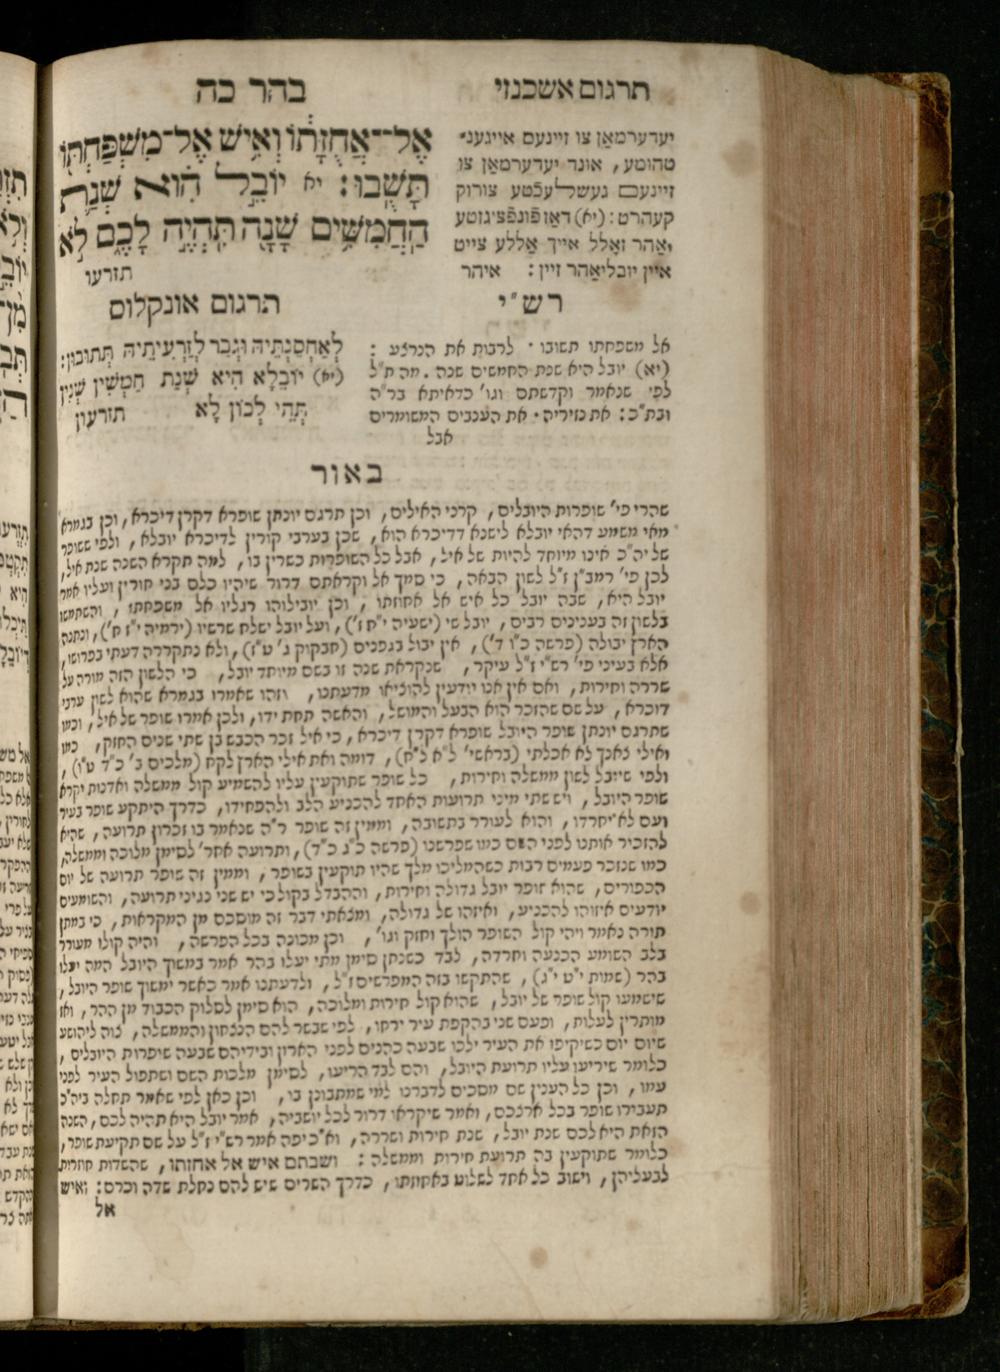 בהר כה
אֶל־אֲחֻזָּתוֹ וְאִישׁ אֶל־מִשְׁפַּחְתּוֹ
תָּשֻׁבוּ: יא יוֹבֵל הִוא שְׁנַת
הַחֲמִשִּׁים שָׁנָה תִּהְיֶה לָכֶם לֹא
תזרעו
תרגום אשכנזי
יעדערמאַן צו זיינעם אייגענ־
טהומע, אונד יעדערמאַן צו
זיינעם געשלעכֿטע צוריק
קעהרט: (יא) דאָז פֿונפֿציגזטע
יאַהר זאָלל אייך אַללע צייט
איין יובליאַהר זיין: איהר
תרגום אונקלוס
לְאַחְסַנְתֵּיהּ וּגְבַר לְזַרְעִיתֵיהּ תְּתוּבוּן:
(יא) יוֹבֵלָא הִיא שְׁנַת חַמְשִׁין שְׁנִין
תְּהֵי לְכוֹן לָא תזרעון
רש״י
אל משפחתו תשובו · לרבות את הנרצע :
(יא) יובל היא שנת החמשים שנה . מה ת״ל
לפי שנאמר וקדשתם וגו' כדאיתא בר״ה
ובת״כ: את נזיריה · את הענבים המשומרים
אבל
באור
שהרי פי' שופרות היובלים, קרני האילים, וכן תרגם יונתן שופרא דקרן דיכרא, וכן בגמרא
מאי משמע דהאי יובלא לישנא דדיכרא הוא, שכן בערבי קורין לדיכרא יובלא, ולפי ששופר
של יה״כ אינו מיוחד להיות של איל, אבל כל השופרות כשרין בו, למה תקרא השנה שנת איל,
לכן פי' רמב״ן ז״ל לשון הבאה, כי סמך אל וקראתם דרור שיהיו כלם בני חורין ועליו אמר
יובל היא, שבה יובל כל איש אל אחוזתו, וכן יובילוהו רגליו אל משפחתו, והשתמשו
בלשון זה בענינים רבים, יובל שי (ישעיה י״ח ז'), ועל יובל ישלח שרשיו (ירמיה י״ז ח'), ונתנה
הארץ יבולה (פרשה כ״ו ד'), אין יבול בגפנים (חבקוק ג' ט״ז), ולא נתקררה דעתי בפרושו,
אלא בעיני פי' רש״י ז״ל עיקר, שנקראת שנה זו בשם מיוחד יובל, כי הלשון הזה מורה על
שררה וחירות, ואם אין אנו יודעין להוציאו מדעתנו, וזהו שאמרו בגמרא שהוא לשון ערבי
דוכרא, על שם שהזכר הוא הבעל והמושל, והאשה תחת ידו, ולכן אמרו שופר של איל, וכמו
שתרגם יונתן שופר היובל שופרא דקרן דיכרא, כי איל זכר הכבש בן שתי שנים החזק, כמו
ואילי צאנך לא אכלתי (בראשי' ל״א ל״ח), דומה ואת אילי הארץ לקח (מלכים ב' כ״ד ט״ו),
ולפי שיובל לשון ממשלה וחירות, כל שופר שתוקעין עליו להשמיע קול ממשלה ואדנות יקרא
שופר היובל, ויש שתי מיני תרועות האחד להכניע הלב ולהפחידו, כדרך היתקע שופר בעיר
ועם לא יחרדו, והוא לעורר בתשובה, וממין זה שופר ר״ה שנאמר בו זכרון תרועה, שהיא
להזכיר אותנו לפני השם כמו שפרשנו (פרשה כ״ג כ״ד), ותרועה אחר' לסימן מלוכה וממשלה,
כמו שנזכר פעמים רבות כשהמליכו מלך שהיו תוקעין בשופר, וממין זה שופר תרועה של יום
הכפורים, שהוא שופר יובל גדולה וחירות, וההבדל בקול כי יש שני נגיני תרועה, והשומעים
יודעים איזוהו להכניע, ואיזהו של גדולה, ומצאתי דבר זה מוסכם מן המקראות, כי במתן
תורה נאמר ויהי קול השופר הולך וחזק וגו', וכן מכונה בכל הפרשה, והיה קולו מעורר
בלב השומע הכנעה וחרדה, לבד כשנתן סימן מתי יעלו בהר אמר במשוך היובל המה יעלו
בהר (שמות י״ט י״ג), שהתקשו בזה המפרשים ז״ל, ולדעתנו אמר כאשר ימשוך שופר היובל,
שישמעו קול שופר של יובל, שהוא קול חירות ומלוכה, הוא סימן לסלוק הכבוד מן ההר, ואז
מותרין לעלות, ופעם שני בהקפת עיר יריחו, לפי שבשר להם הנצחון והממשלה, צוה ליהושע
שיום יום כשיקיפו את העיר ילכו שבעה כהנים לפני הארון ובידיהם שבעה שופרות היובלים,
כלומר שיריעו עליו תרועת היובל, והם לבד הריעו, לסימן מלכות השם ושתפול העיר לפני
עמו, וכן כל הענין שם מסכים לדברנו למי שמתבונן בו, וכן כאן לפי שאמר תחלה ביה״כ
תעבירו שופר בכל ארצכם, ואמר שיקראו דרור לכל יושביה, אמר יובל היא תהיה לכם, השנה
הזאת היא לכם שנת יובל, שנת חירות ושררה, וא״כ יפה אמר רש״י ז״ל על שם תקיעת שופר,
כלומר שתוקעין בה תרועת חירות וממשלה: ושבתם איש אל אחזתו, שהשדות חוזרות
לבעליהן, וישוב כל אחד לשלוט באחוזתו, כדרך השרים שיש להם נחלת שדה וכרם: ואיש
אל